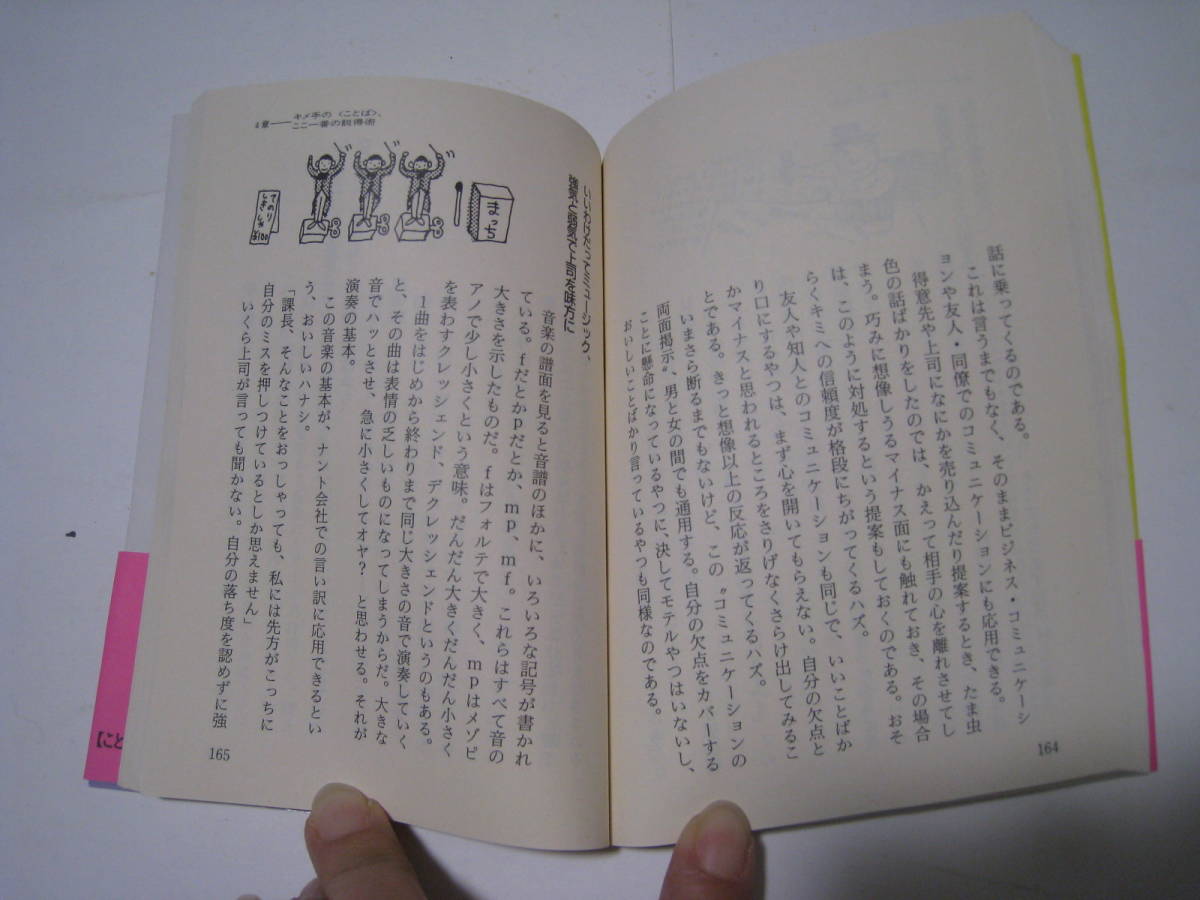 話に乗ってくるのである。
これは言うまでもなく、そのままビジネス・コミュニケーションにも応用できる。
得意先や上司になにかを売り込んだり提案するとき、たま虫
ョンや友人・同僚でのコミュニケーシ
色の話ばかりをしたのでは、かえって相手の心を離れさせてし
まう。巧みに想像しうるマイナス面にも触れておき、その場合
は、このように対処するという提案もしておくのである。おそ
らくキミへの信頼度が格段にちがってくるハズ。
友人や知人とのコミュニケーションも同じで、いいことばか
り口にするやつは、まず心を開いてもらえない。自分の欠点と
かマイナスと思われるところをさりげなくさらけ出してみるこ
とである。きっと想像以上の反応が返ってくるハズ。
いまさら断るまでもないけど、この〝コミュニケーションの
両面掲示〟、男と女の間でも通用する。自分の欠点をカバーする
ことに懸命になっているやつに、決してモテルやつはいないし、
おいしいことばかり言っているやつも同様なのである。
164
4章――キメ手の〈ことば〉、
ここ一番の説得術
まっち
てのり
しばい
¥100
いいわけだってミュージック、
強気と弱気で上司を味方に
音楽の譜面を見ると音譜のほかに、いろいろな記号が書かれ
ている。fだとかpだとか、mp、mf。これらはすべて音の
大きさを示したものだ。fはフォルテで大きく、mpはメゾピ
アノで少し小さくという意味。だんだん大きくだんだん小さく
を表わすクレッシェンド、デクレッシェンドというのもある。
1曲をはじめから終わりまで同じ大きさの音で演奏していく
と、その曲は表情の乏しいものになってしまうからだ。大きな
音でハッとさせ、急に小さくしてオヤ? と思わせる。それが
演奏の基本。
この音楽の基本が、ナント会社での言い訳に応用できるとい
う、おいしいハナシ。
「課長、そんなことをおっしゃっても、私には先方がこっちに
自分のミスを押しつけているとしか思えません」
いくら上司が言っても聞かない。自分の落ち度を認めずに強
165
【こと